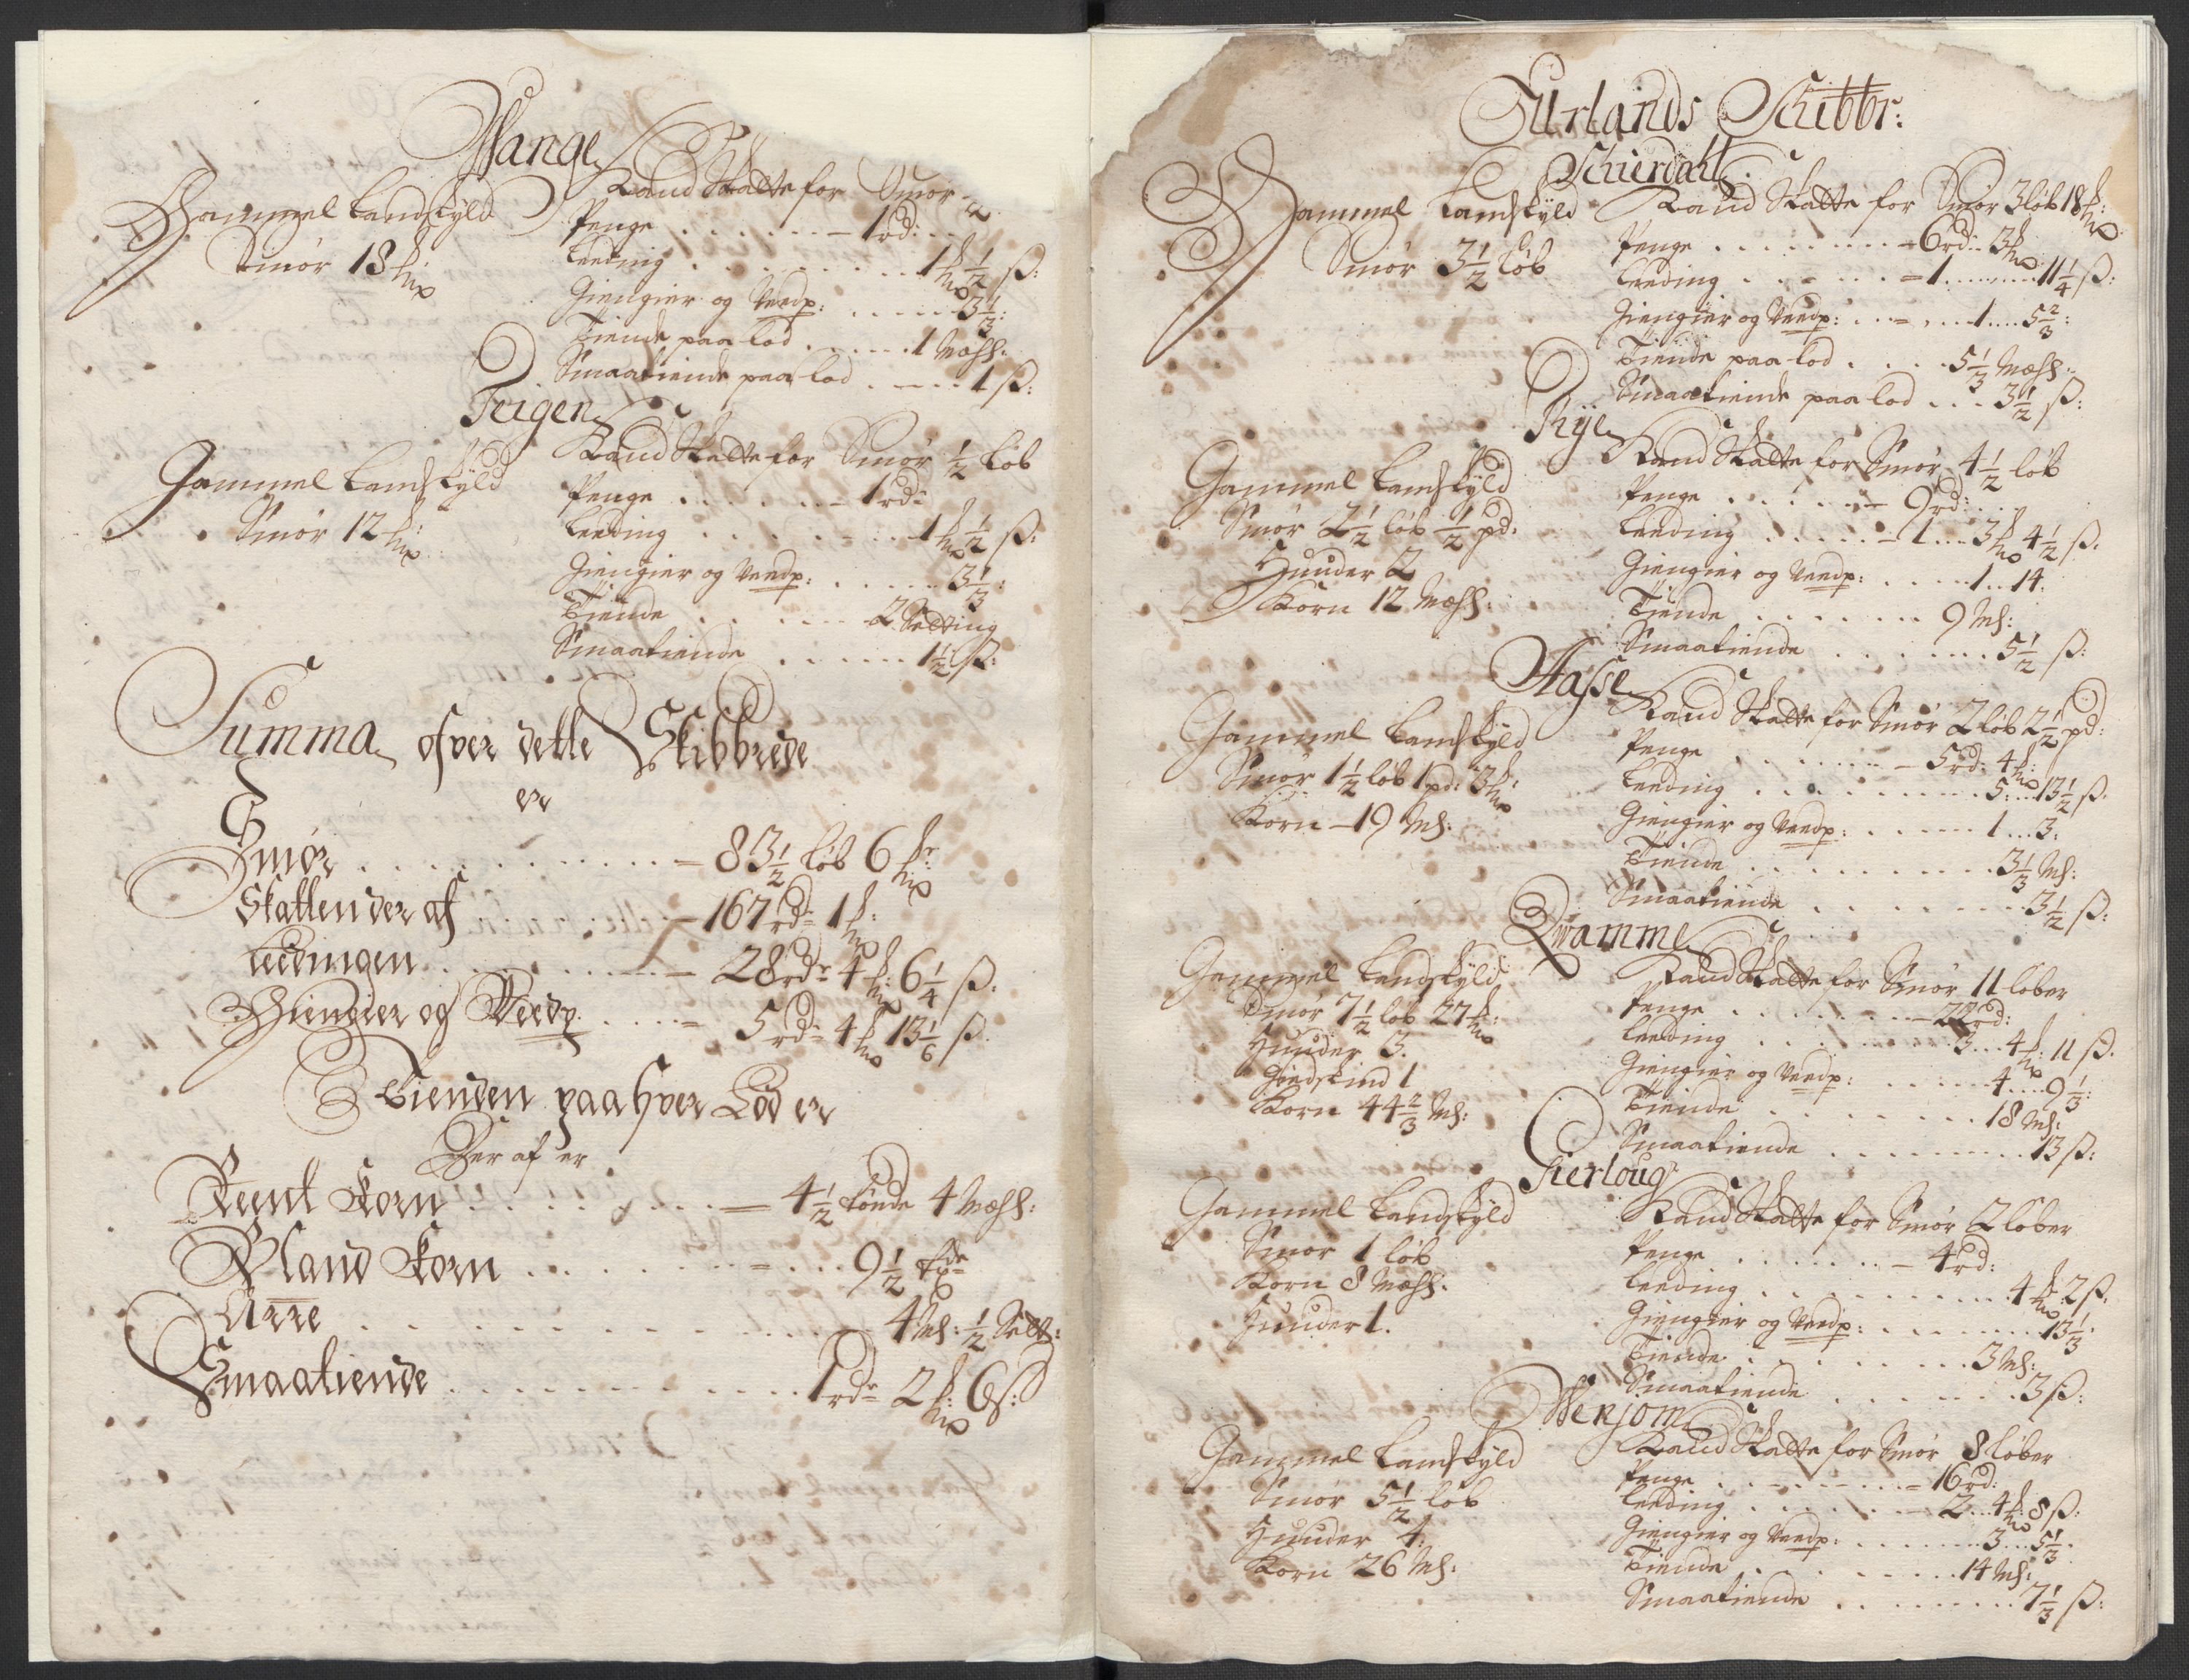 Wange
Gammel Landskyld
Smör 18 mk
Kand Skatte for Smör
Penge . . . . . . 1 rd:
Leeding . . . . . . . 1 mk ½ ß:
Giengier og Veedp: . . . . . 3⅓:
Tiende paa lod . . . . . 1 Mæhl:
Smaatiende paa lod . . . . 1 ß:
Teigen
Gammel Landskyld
Smör 12 mk:
Kand Skatte for Smör ½ löb
Penge . . . . . . 1 rdr
Leeding . . . . . . . 1 mk ½ ß:
Giengier og Veedp: . . . . . 3⅓:
Tiende . . . . . . 2 Setting
Smaatiende . . . . . . 1½ ß:
Summa ofver dette Skibbrede
er
Smör . . . . . . . . . . . 83½ löb 6 mkr
Skatten der af . . . 167 rdr 1 mk:
Leedingen . . . . . . . . 28 rdr 4 mk: 6¼ ß:
Giengier og Veedp. . . . . 5 rdr 4 mk 13⅙ ß.
Tienden paa hver Lod er
Der af er
Reent Korn . . . . . . . . 4½ tönde 4 Mæhl:
Bland Korn . . . . . . . . . 9½ tdr
Arre . . . . . . . . . . . 4 Mh: ½ Sett:
Smaatiende . . . . . . . . . . 1 rdr 2 mk: 6 ß:
Surlands Schibbr:
Schierdahl
Gammel Landskyld
Smör 3½ löb
Kand Skatte for Smör 3 löb 18 mk:
Penge . . . . . . . . 6 rd: 3 mk
Leeding . . . . . . 1 . . . . . 11¼ ß:
Giengier og Veedp: . . . . 1 . . . . 5⅔:
Tiende paa lod . . . . . 5⅓ Mæhl:
Smaatiende paa lod . . . 3½ ß:
Rye
Gammel Landskyld
Smör 2½ löb ½ pd:
Huuder 2
Korn 12 Mæhl:
Kand Skatte for Smör 4½ löb
Penge . . . . . . 9 rd:
Leeding . . . . . . 1 . . . 3 mk 4½ ß.
Giengier og Veedp: . . . . 1 . . 14.
Tiende . . . . . . . 9 Mh:
Smaatiende . . . . . . . 5½ ß:
Aasse
Gammel Landskyld
Smör 1½ löb 1 pd: 3 mk:
Korn 19 Mh:
Kand Skatte for Smör 2 löb 2½ pd:
Penge . . . . . . . . 5 rd: 4 mk:
Leeding . . . . . . . . . . 5 . . . 13½ ß.
Giengier og Veedp: . . . . . . 1 . . . 3:
Tiende . . . . . . . . . . . 3⅓ Mh:
Smaatiende . . . . . . . . . 3½ ß:
Qvamme
Gammel Landskyld
Smör 7½ löb 27 mk:
Huuder 3.
Giedskind 1
Korn 44⅔ Mh:
Kand Skatte for Smör 11 löber
Penge . . . . . . . . 22 rd:
Leeding . . . . . . . . 3 . . . 4 mk: 11 ß.
Giengier og Veedp: . . . . . . 4 . . . . 9⅓:
Tiende . . . . . . . . . . 18 Mh:
Smaatiende . . . . . . . . . . 13 ß:
Gammel Landskyld
Smör 1 löb
Korn 8 Mæhl.
Huuder 1.
Kand Skatte for Smör 2 löber
Penge . . . . . . . 4 rd:
Leeding . . . . . . . . . . . 4 mk: 2 ß.
Giengier og Veedp: . . . . . . . . 13⅓
Tiende . . . . . . . . . . 3 Mh:
Smaatiende . . . . . . . . 3 ß:
Wenjom
Gammel Landskyld
Smör 5½ löb
Huuder 4:
Korn 26 Mh:
Kand Skatte for Smör 8 löber
Penge . . . . . . . . 16 rd:
Leeding . . . . . . . 2 . . . 4 mk: 8 ß:
Giengier og Veedp: . . . . . . . 3 . . . 5⅓.
Tiende . . . . . . . . . 14 Mh:
Smaatiende . . . . . . . . . . 7⅓ ß: